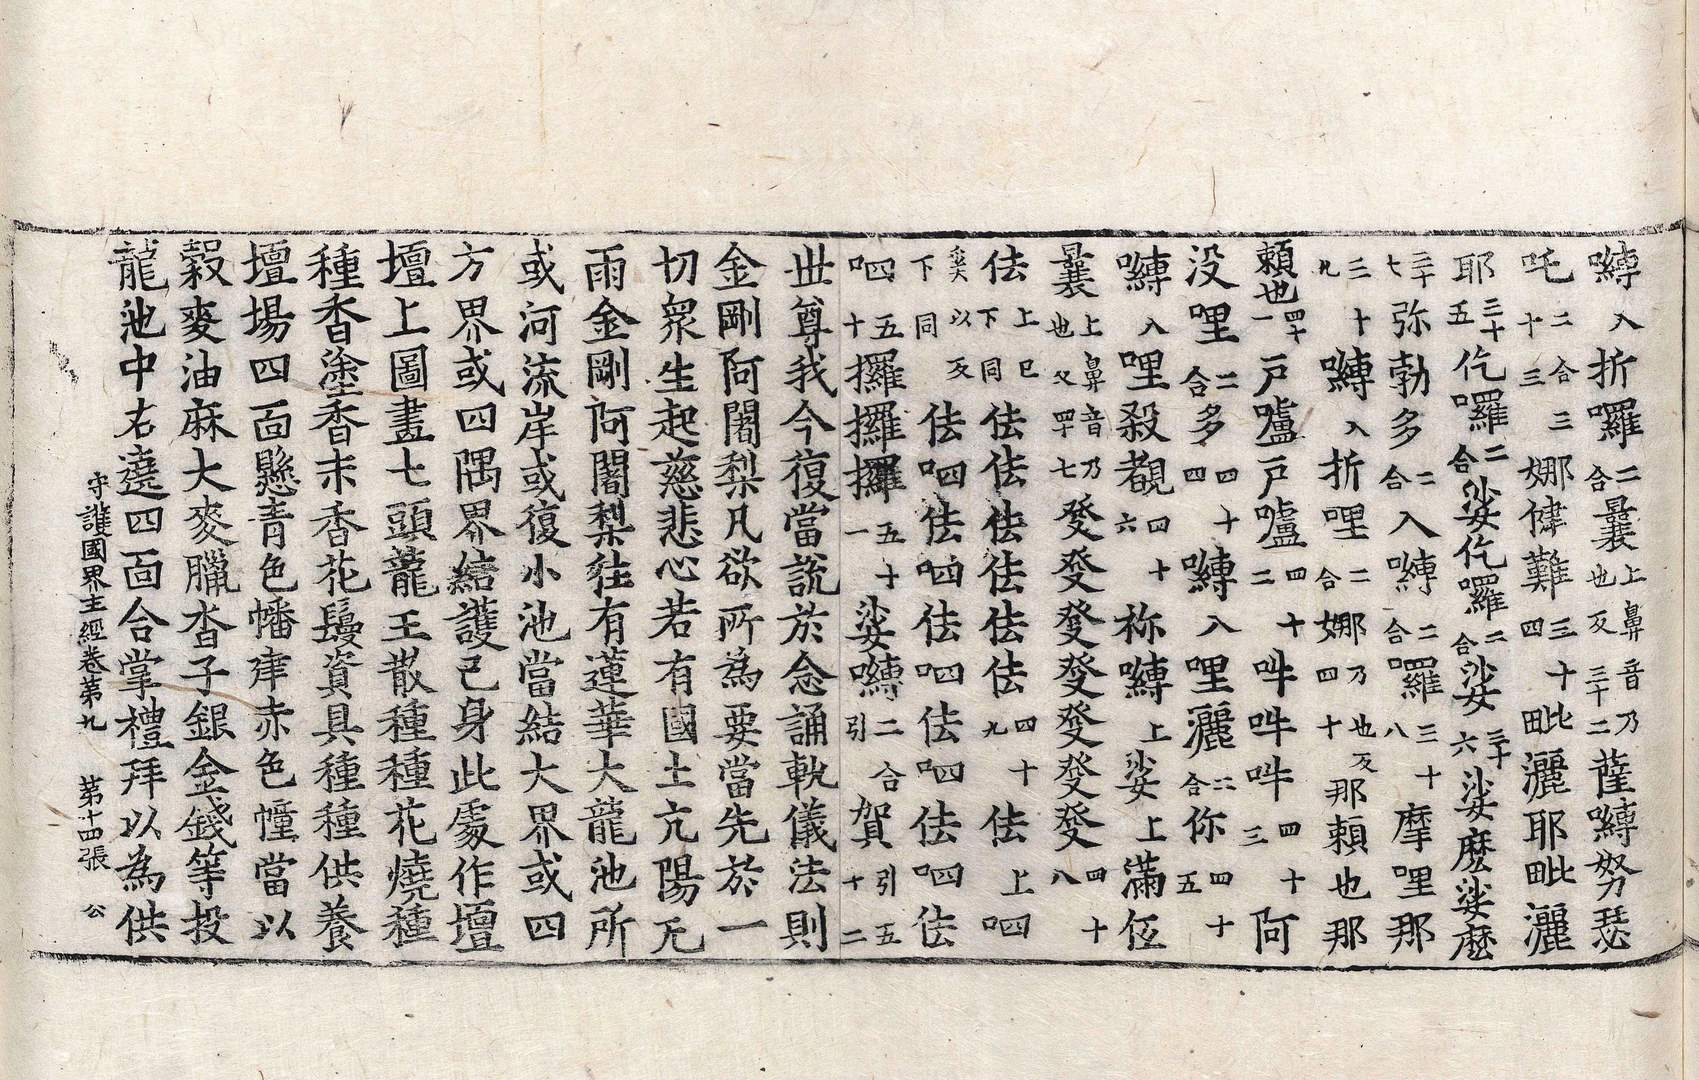 嚩入折囉二合曩上鼻音乃也反三十二薩嚩努瑟
吒二合三十三娜㣶難三十四毗灑耶毗灑
耶三十五仡囉二合娑仡囉二合娑三十六娑麽娑麽
三十七弥勃多二合入嚩二合囉三十八摩哩那
三十九嚩入折哩二合娜乃也反四十那頼也那
頼也四十一戸嚧戸嚧四十二吽吽吽四十三阿
没哩二合多四十四嚩入哩灑二合你四十五
嚩入哩殺覩四十六祢嚩上娑上滿伍
曩上鼻音乃也反四十七發發發發發發發四十八
佉上下同佉佉佉佉佉佉四十九佉上呬
以反下同佉呬佉呬佉呬佉呬佉呬佉
呬五十攞攞攞五十一娑嚩二合引賀引五十二
世尊我今復當說於念誦軌儀法則
金剛阿闍梨凡欲所為要當先於一
切衆生起慈悲心若有國土亢陽无
雨金剛阿闍梨往有蓮華大龍池所
或河流岸或復小池當結大界或四
方界或四隅界結護己身此處作壇
壇上圖畫七頭龍王散種種花燒種
種香塗香末香花鬘資具種種供養
壇場四面懸青色幡庫赤色幢當以
穀麥油麻大麥臈沓子銀金錢等投
龍池中右遶四面合掌禮拜以為供
守護國界主經卷第九　第十四張　公